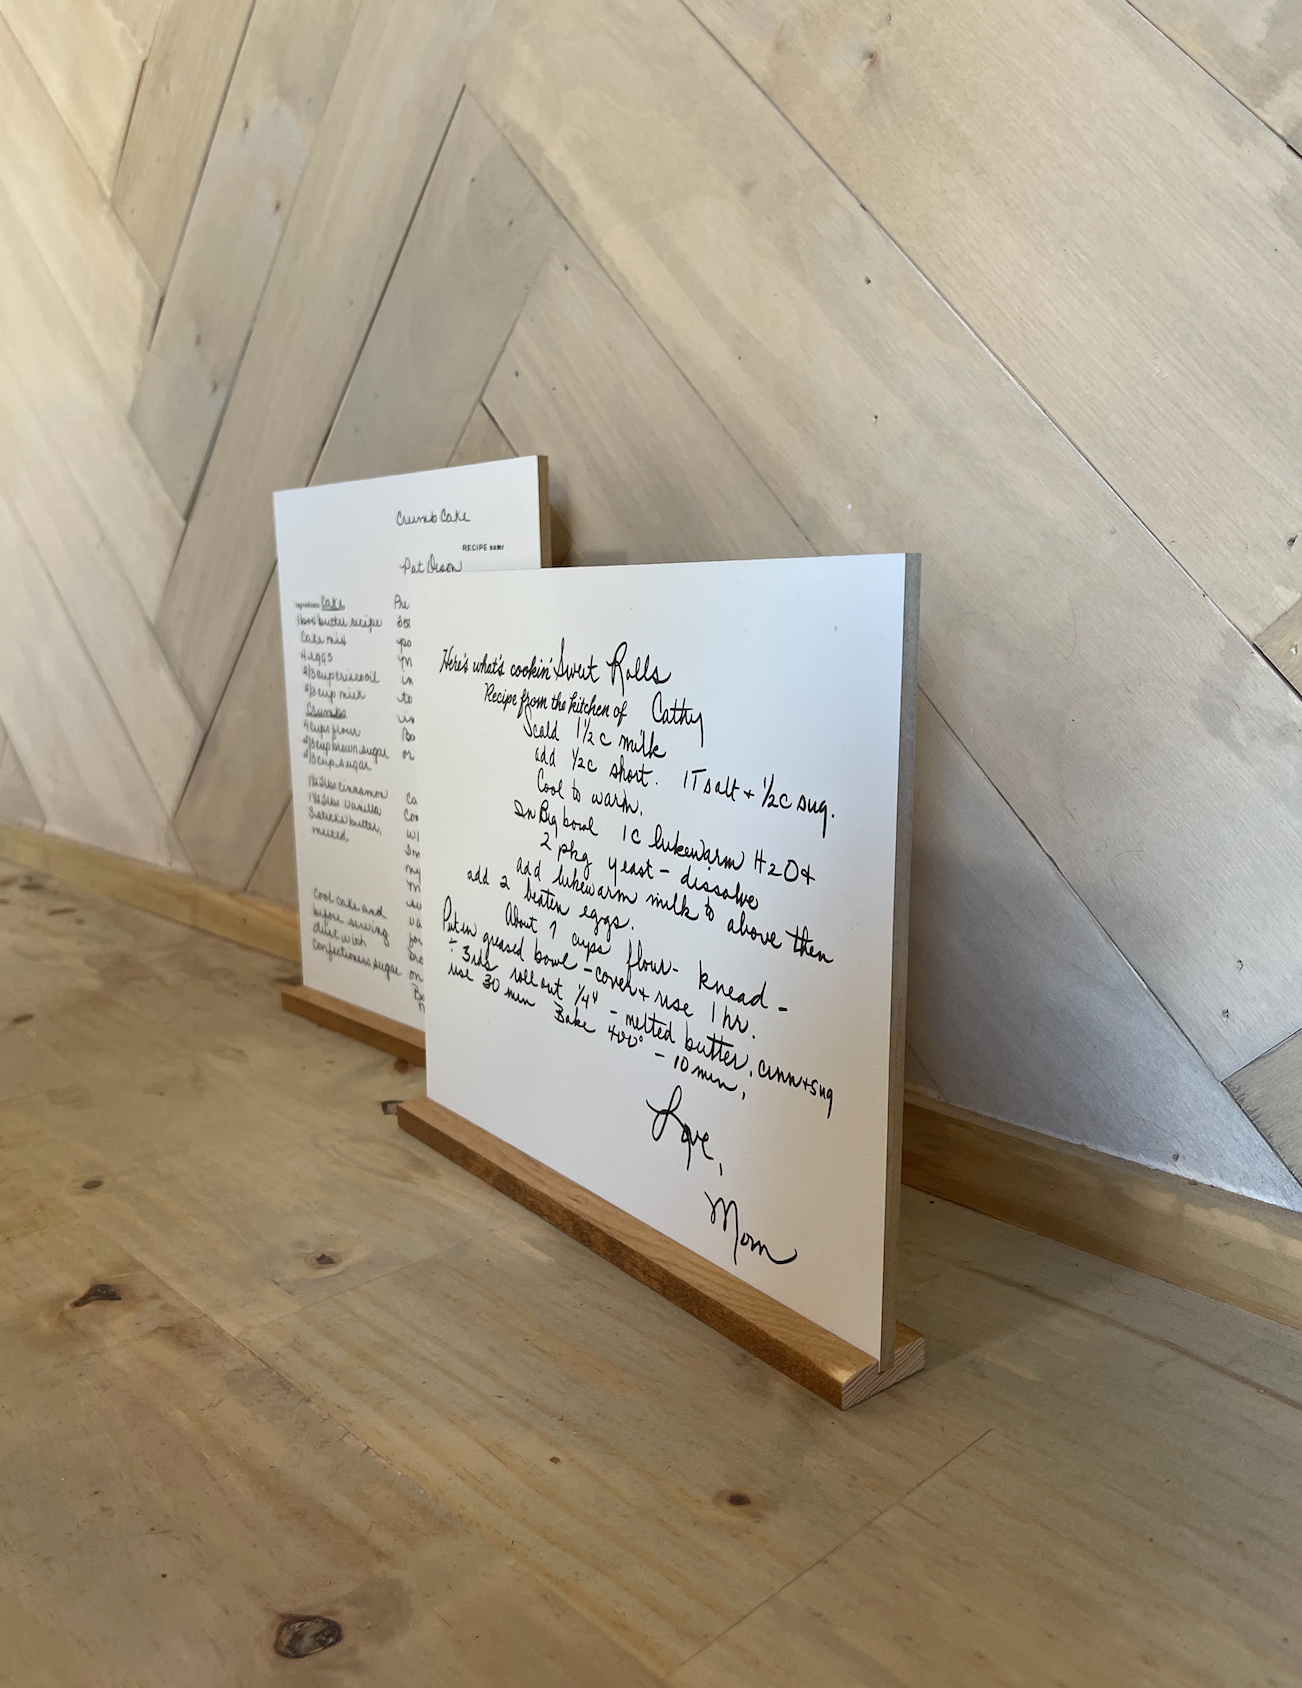 Crumb Cake
RECIPE
Pat Olson
Ingredients Cake
1 box butter recipe
Cake mix
4 eggs
2/3 cup crisco oil
2/3 cup milk
Crumbs
4 cups flour
2/3 cup brown sugar
2/3 cup sugar
1½ tbs cinnamon
1½ tbs vanilla
3 sticks butter,
melted
Cool cake and
before serving
dust with
Confectioners sugar
Here's what's cookin' Sweet Rolls
Recipe from the kitchen of Cathy
Scald 1½ c milk
add ½ c short. 1T salt + ½ c sug.
Cool to warm.
In Big bowl 1 c lukewarm H2O +
2 pkg yeast - dissolve
add lukewarm milk to above then
add 2 beaten eggs.
About 7 cups flour - knead -
Put in greased bowl - cover + rise 1 hr.
÷ 3rds roll out ¼" - melted butter, cinn + sug
rise 30 min Bake 400° - 10 min,
Love,
Mom